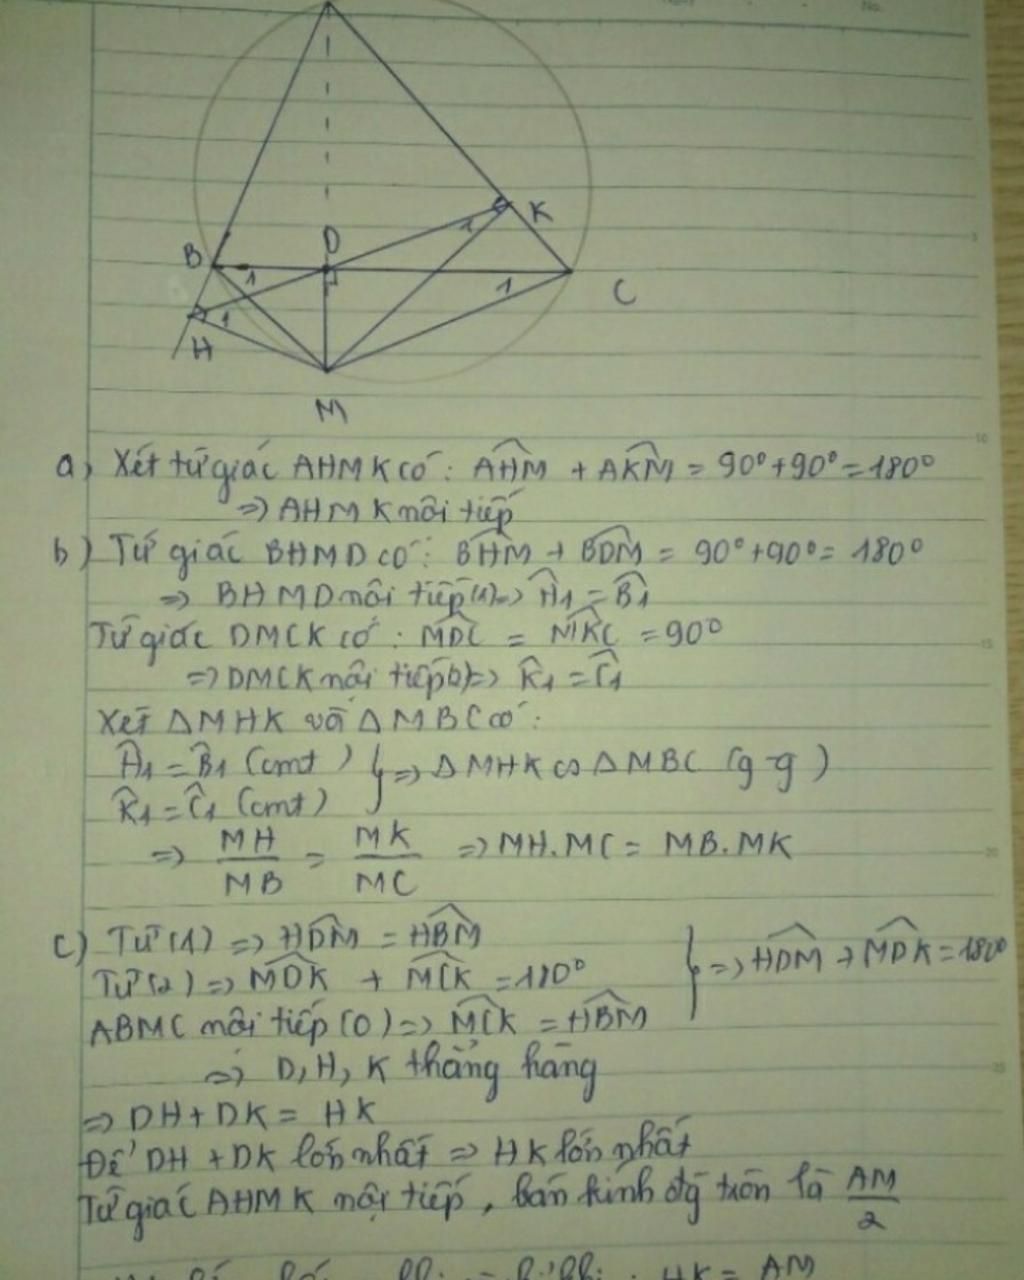 No.
B
D
K
1
1
1
1
C
H
M
a) Xét tứ giác AHMK có: AHM + AKM = 90° + 90° = 180°
=> AHMK nội tiếp
b) Tứ giác BHMD có: BHM + BDM = 90° + 90° = 180°
=> BHMD nội tiếp (1) => H1 = B1
Tứ giác DMCK có: MDC = MKC = 90°
=> DMCK nội tiếp (2) => K1 = C1
Xét ΔMHK và ΔMBC có:
H1 = B1 (cmt) } => ΔMHK ∽ ΔMBC (g-g)
K1 = C1 (cmt)
=> MH/MB = MK/MC => MH.MC = MB.MK
c) Từ (1) => HDM = HBM
Từ (2) => MDK + MCK = 180° } => HDM + MDK = 180°
ABMC nội tiếp (O) => MCK = HBM
=> D, H, K thẳng hàng
=> DH + DK = HK
Để DH + DK lớn nhất => HK lớn nhất
Tứ giác AHMK nội tiếp, bán kính đg tròn là AM/2
HK = AM